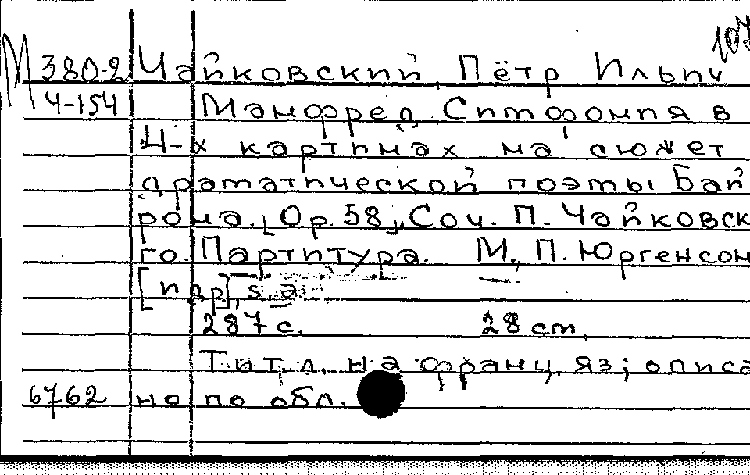 107
М 380-2 Чайковский, Пётр Ильич
Ч-154 Манфред. Симфония в
4-х картинах на сюжет
драматической поэмы Бай
рона. [Op. 58], Соч. П. Чайковск
го. Партитура. М., П. Юргенсон
[пдр], s.a.
287 с. 28 cm.
Тит. л. на франц. яз; описа
6762 но по обл.